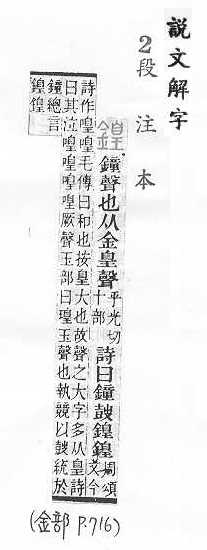 説文解字
2段注本
鍠 鐘聲也从金皇聲 乎光切 十部 詩曰鐘鼓鍠鍠 周頌 文今
詩作喤喤毛傳曰和也按皇大也故聲之大字多从皇詩
曰其泣喤喤喤喤厥聲玉部曰瑝玉聲也執競以鼓統於
鐘總言
鍠鍠
(金部 P.716)